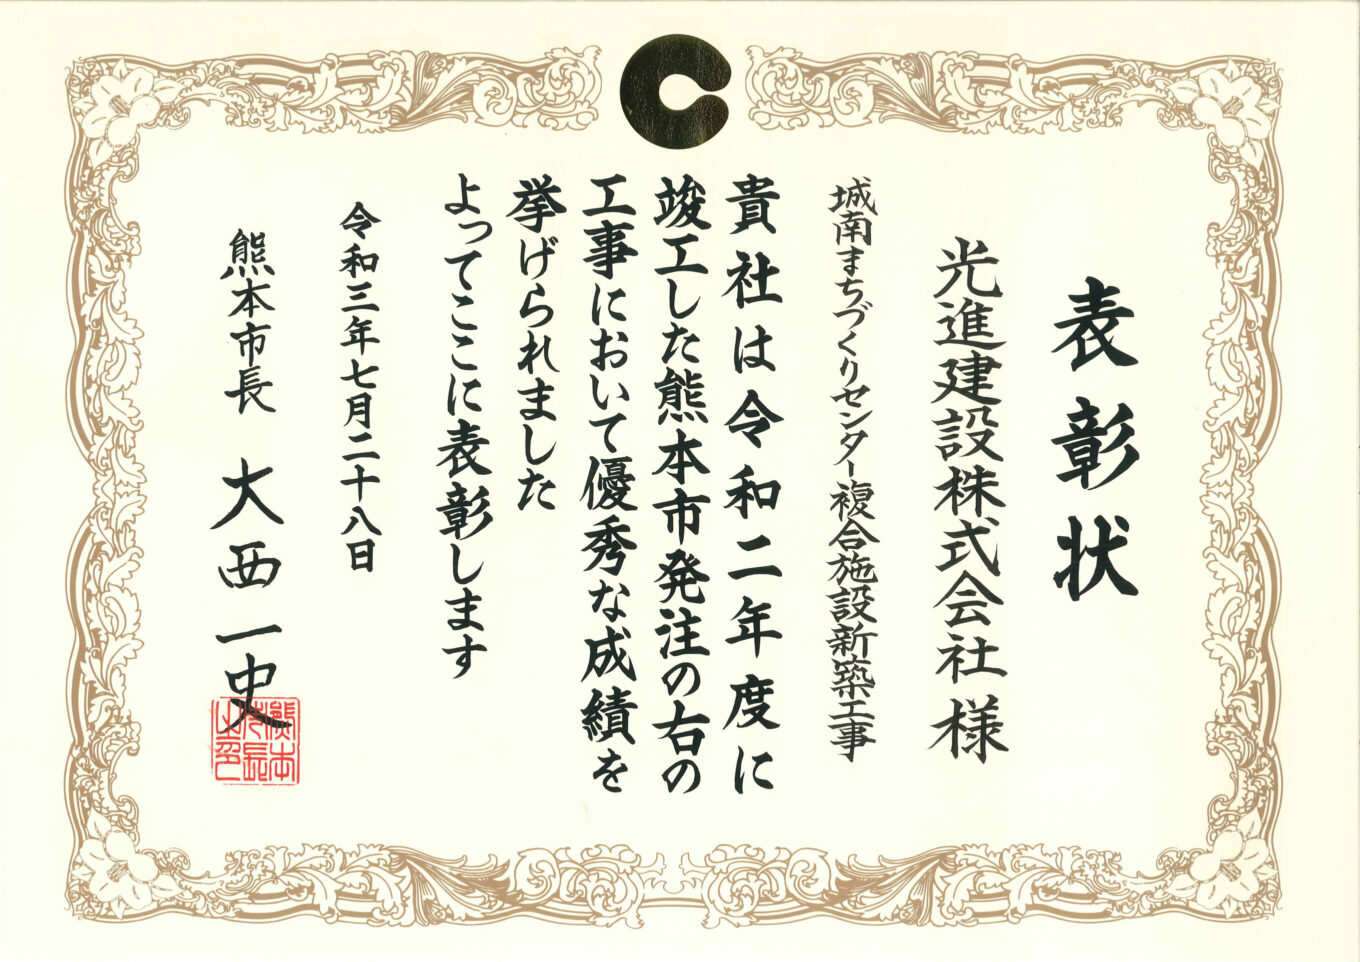 表彰状
光進建設株式会社様
城南まちづくりセンター複合施設新築工事
貴社は令和二年度に
竣工した熊本市発注の右の
工事において優秀な成績を
挙げられました
よってここに表彰します
令和三年七月二十八日
熊本市長 大西一史
熊本
市長
之印